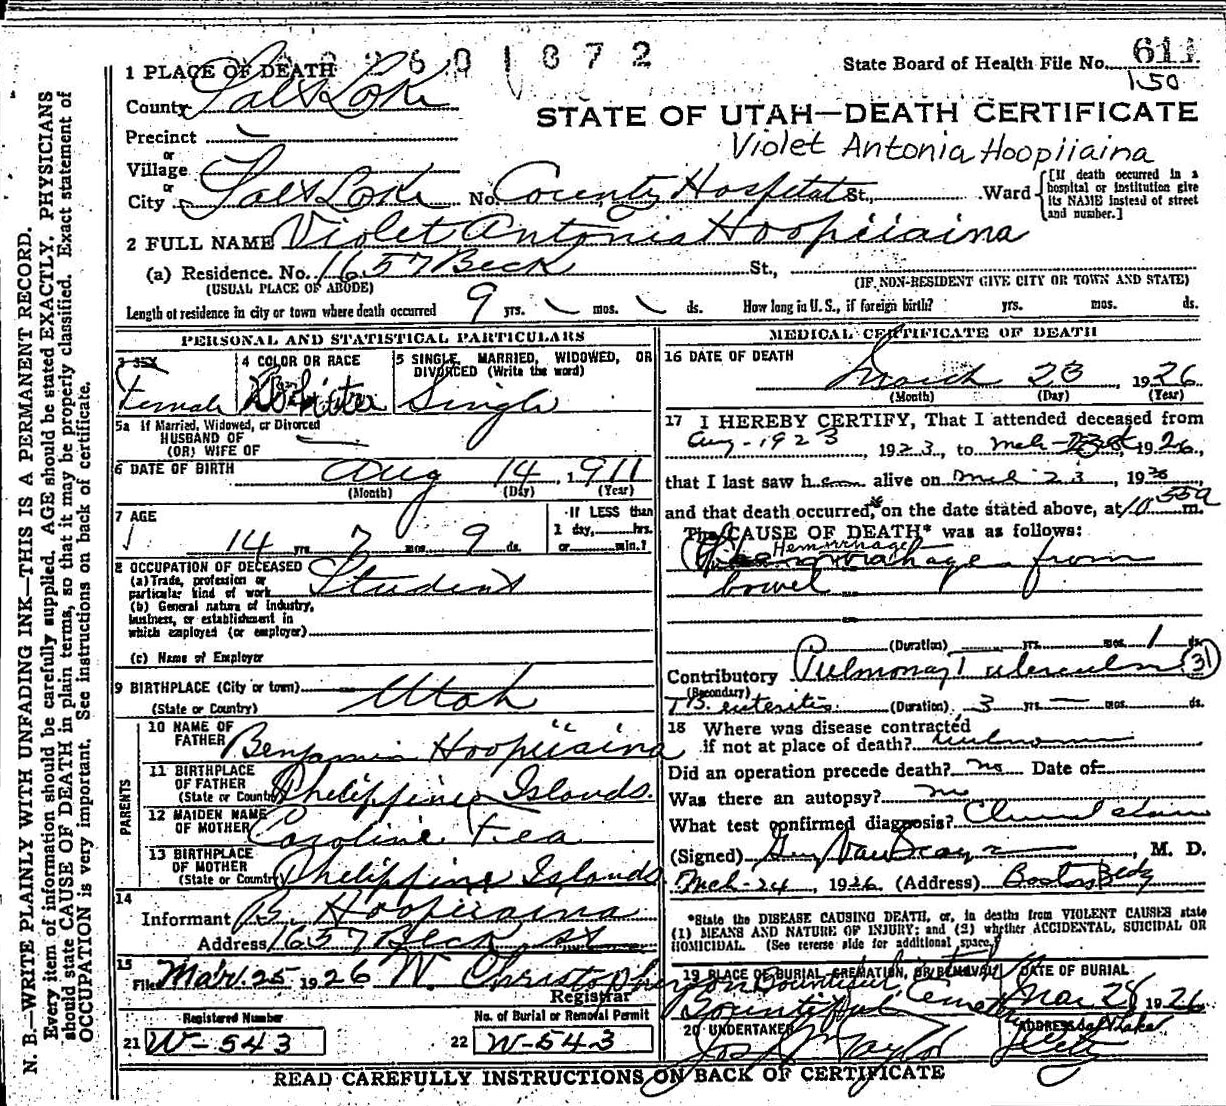 2601872
State Board of Health File No. 611
150
1 PLACE OF DEATH
County Salt Lake
STATE OF UTAH—DEATH CERTIFICATE
Precinct
Violet Antonia Hoopiiaina
or
Village
or
City Salt Lake No. County Hospital St., Ward
[If death occurred in a hospital or institution give its NAME instead of street and number.]
2 FULL NAME Violet Antonia Hoopiiaina
(a) Residence. No. 1657 Beck St.,
(USUAL PLACE OF ABODE) (IF NON-RESIDENT GIVE CITY OR TOWN AND STATE)
Length of residence in city or town where death occurred 9 yrs. mos. ds. How long in U. S., if foreign birth? yrs. mos. ds.
PERSONAL AND STATISTICAL PARTICULARS
3 SEX
Female
4 COLOR OR RACE
5 SINGLE, MARRIED, WIDOWED, OR DIVORCED (Write the word)
Single
5a If Married, Widowed, or Divorced
HUSBAND OF
(OR) WIFE OF
6 DATE OF BIRTH Aug 14, 1911
(Month) (Day) (Year)
7 AGE
14 yrs. 7 mos. 9 ds.
If LESS than
1 day, hrs.
or min.?
8 OCCUPATION OF DECEASED
(a) Trade, profession or
particular kind of work Student
(b) General nature of Industry,
business, or establishment in
which employed (or employer)
(c) Name of Employer
9 BIRTHPLACE (City or town)
(State or Country) Utah
PARENTS
10 NAME OF
FATHER Benjamin Hoopiiaina
11 BIRTHPLACE
OF FATHER
(State or Country) Philippine Islands.
12 MAIDEN NAME
OF MOTHER Caroline Fea
13 BIRTHPLACE
OF MOTHER
(State or Country) Philippine Islands
14
Informant B. Hoopiiaina
Address 1657 Beck St
15
Filed Mar. 25 1926 W. Christopherson
Registrar
Registered Number
21 W-543
No. of Burial or Removal Permit
22 W-543
MEDICAL CERTIFICATE OF DEATH
16 DATE OF DEATH
March 23, 1926
(Month) (Day) (Year)
17 I HEREBY CERTIFY, That I attended deceased from
Aug-1923, 1923, to Mch 23, 1926,
that I last saw h alive on Mch 23, 1926
and that death occurred, on the date stated above, at 10 55a m.
The CAUSE OF DEATH* was as follows:
Hemorrhage
from
bowel
(Duration) yrs. mos. 1 ds.
Contributory Pulmonary Tuberculosis 31
(Secondary)
T.B. enteritis (Duration) 3 yrs. ds.
18 Where was disease contracted
if not at place of death? unknown
Did an operation precede death? no Date of
Was there an autopsy? no
What test confirmed diagnosis? Clinical
(Signed) M. D.
Mch-24, 1926 (Address) Boston Bldg
*State the DISEASE CAUSING DEATH, or, in deaths from VIOLENT CAUSES state
(1) MEANS AND NATURE OF INJURY; and (2) whether ACCIDENTAL, SUICIDAL OR
HOMICIDAL. (See reverse side for additional space.)
19 PLACE OF BURIAL, CREMATION, OR REMOVAL
Bountiful
Bountiful Cemetery
DATE OF BURIAL
Mar 28 1926
20 UNDERTAKER
Jos. Taylor
ADDRESS Salt Lake
City
READ CAREFULLY INSTRUCTIONS ON BACK OF CERTIFICATE
N. B.—WRITE PLAINLY WITH UNFADING INK—THIS IS A PERMANENT RECORD.
Every item of information should be carefully supplied. AGE should be stated EXACTLY. PHYSICIANS
should state CAUSE OF DEATH in plain terms, so that it may be properly classified. Exact statement of
OCCUPATION is very important. See instructions on back of certificate.